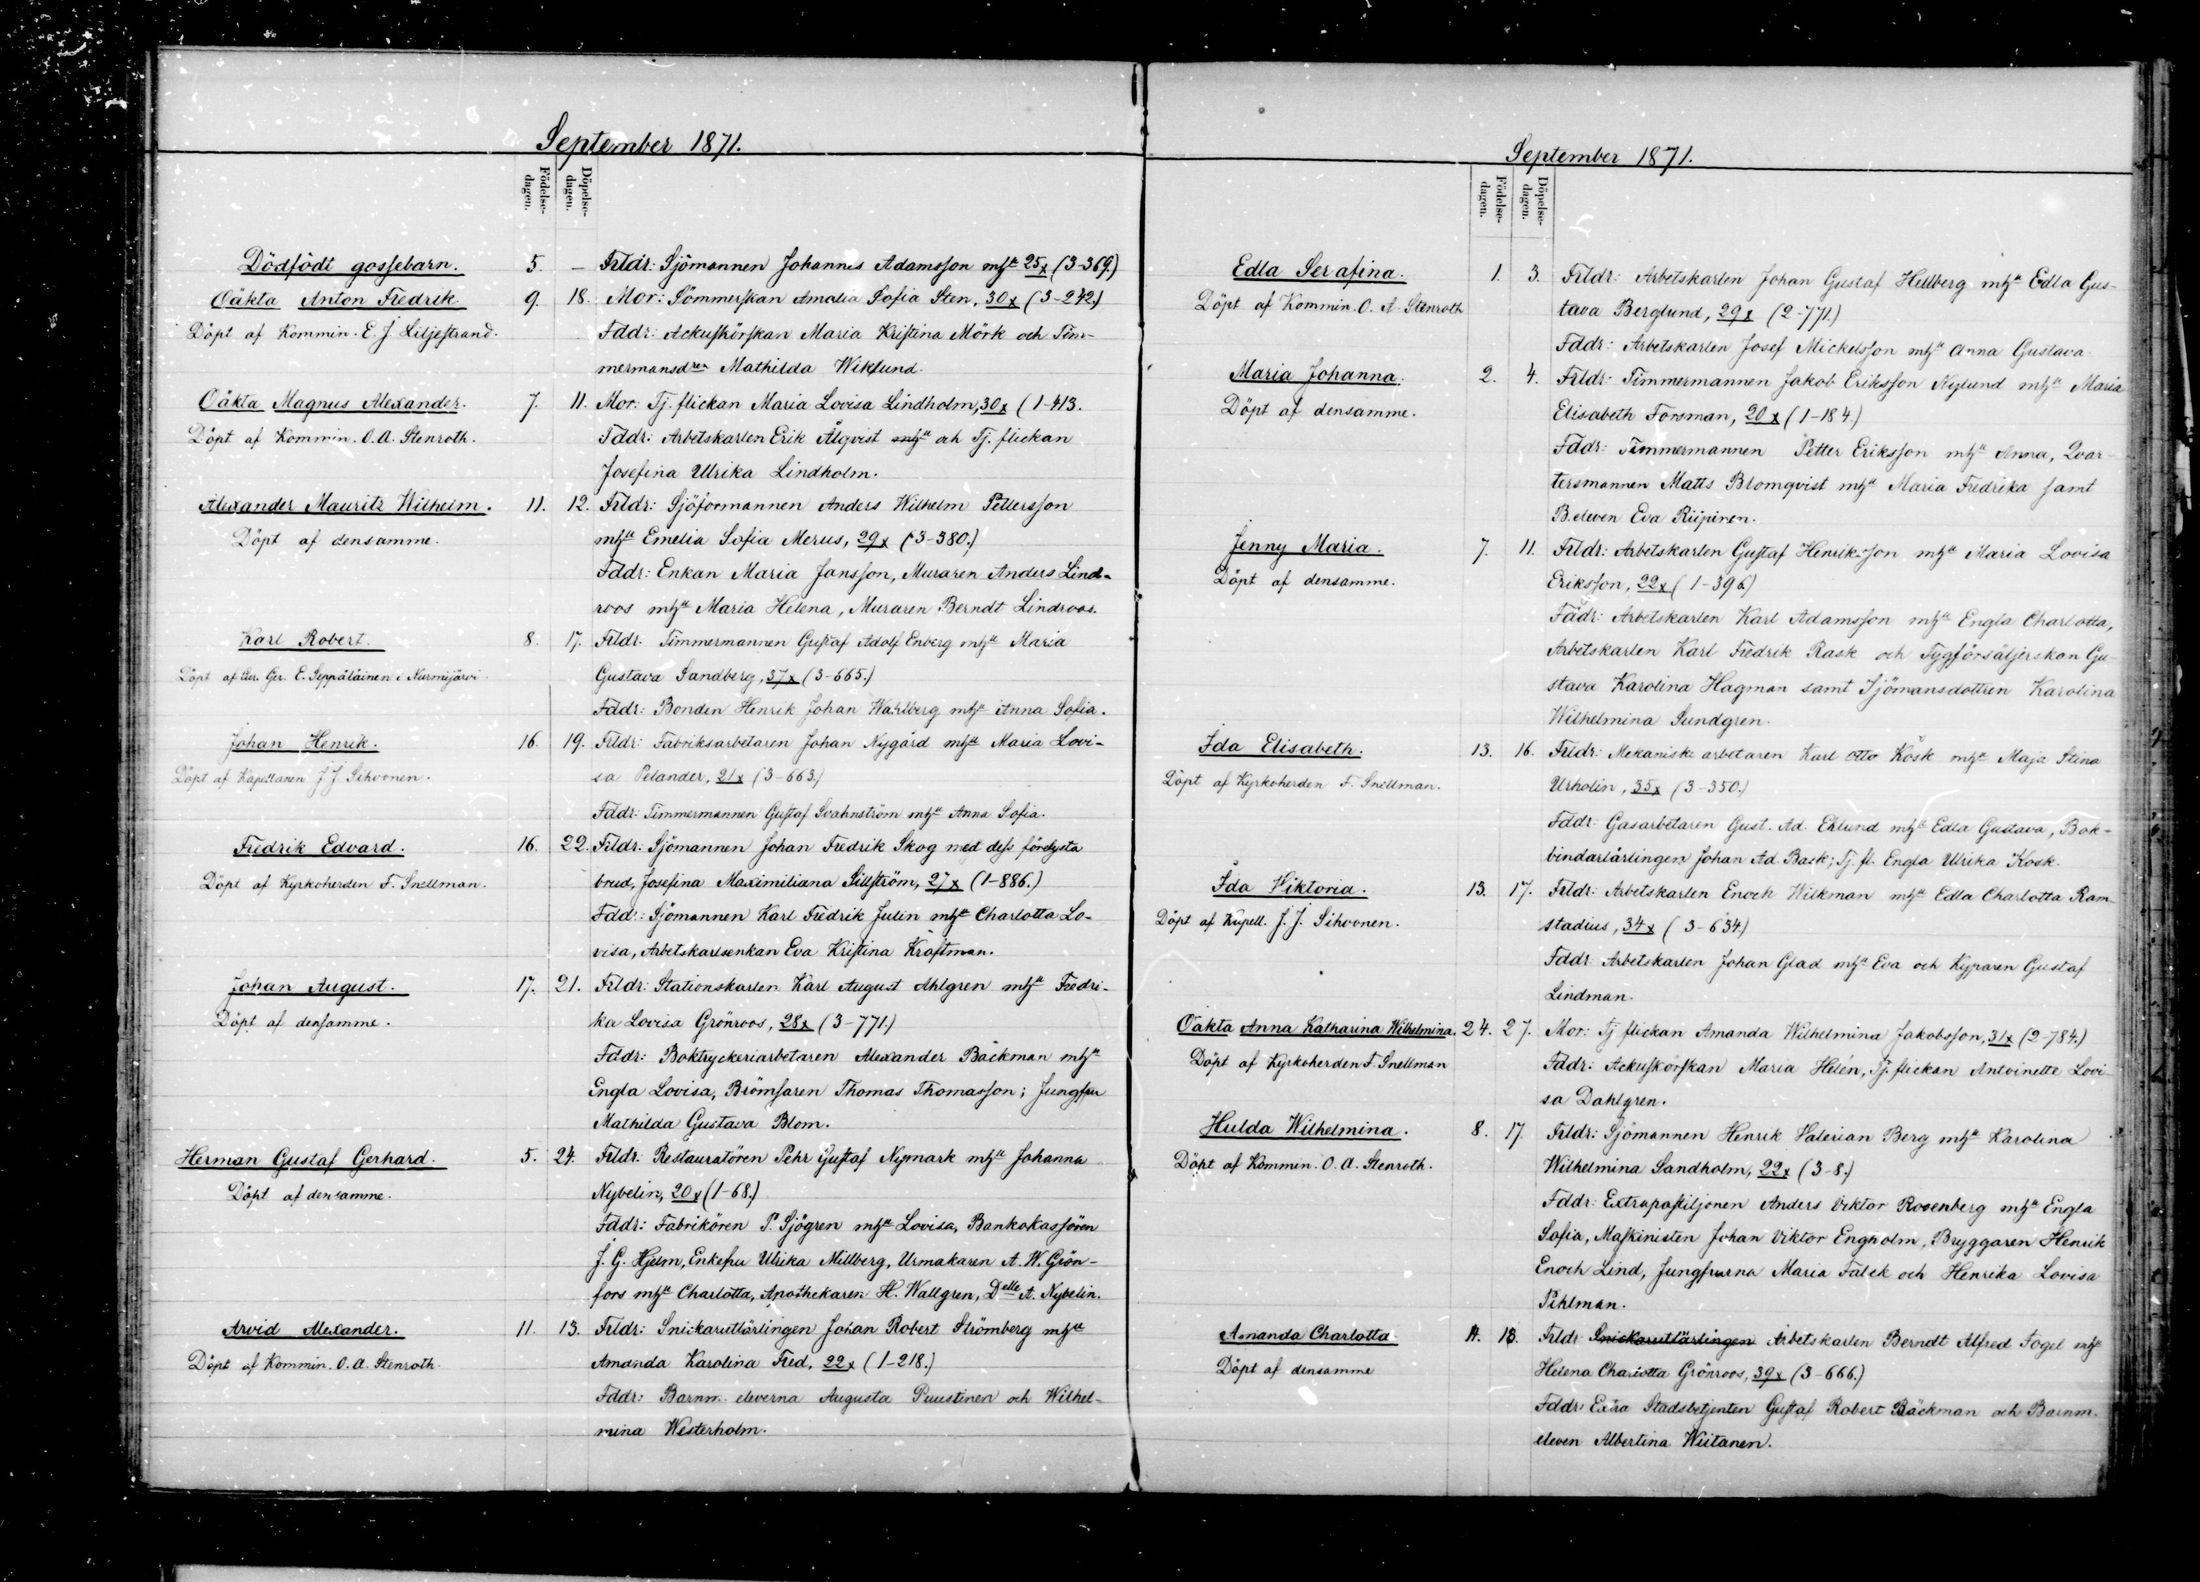 September 1871.
Födelse-
dagen.
Döpelse-
dagen.
Dödfödt gossebarn. 5. — Frldr: Sjömannen Johannes Adamsson mhu 25x (3-369.)
Oäkta Anton Fredrik 9. 18. Mor: Sömmerskan Amalia Sofia Sten, 30x (3-242.)
Döpt af Kommin. E. J. Liljestrand. Fddr: Ackuskörskan Maria Kristina Mörk och Tim-
mermansdren Mathilda Wiklund.
Oäkta Magnus Alexander. 7. 11. Mor: Tj. flickan Maria Lovisa Lindholm, 30x (1-413.
Döpt af Kommin. O. A. Stenroth. Fddr: Arbetskarlen Erik Ålqvist mhu och Tj. flickan
Josefina Ulrika Lindholm.
Alexander Mauritz Wilhelm. 11. 12. Frldr: Sjöformannen Anders Wilhelm Pettersson
Döpt af densamme. mhu Emelia Sofia Merus, 29x (3-380.)
Fddr: Enkan Maria Jansson, Muraren Anders Lind-
roos mhu Maria Helena, Muraren Berndt Lindroos.
Karl Robert. 8. 17. Frldr. Timmermannen Gustaf Adolf Enberg mhu Maria
Döpt af E. Seppäläinen i Nurmijärvi Gustava Sandberg, 37x (3-665.)
Fddr: Bonden Henrik Johan Wahlberg mhu Anna Sofia.
Johan Henrik. 16. 19. Frldr: Fabriksarbetaren Johan Nygård mhu Maria Lovi-
Döpt af Kapellanen J. J. Sihvonen. sa Pelander, 21x (3-663.)
Fddr: Timmermannen Gustaf Svahnström mhu Anna Sofia.
Fredrik Edvard. 16. 22. Frldr: Sjömannen Johan Fredrik Skog med dess förlysta
Döpt af Kyrkoherden F. Snellman. brud, Josefina Maximiliana Sillström, 27x (1-886.)
Fddr: Sjömannen Karl Fredrik Julin mhu Charlotta Lo-
visa, Arbetskarlsenkan Eva Kristina Kraftman.
Johan August. 17. 21. Frldr: Stationskarlen Karl August Ahlgren mhu Fredri-
Döpt af densamme. ka Lovisa Grönroos, 28x (3-771.)
Fddr: Boktryckeriarbetaren Alexander Bäckman mhu
Engla Lovisa, Brömsaren Thomas Thomasson; Jungfru
Mathilda Gustava Blom.
Herman Gustaf Gerhard. 5. 24. Frldr. Restauratören Pehr Gustaf Nymark mhu Johanna
Döpt af densamme. Nybelin, 20x (1-68.)
Fddr: Fabrikören P. Sjögren mhu Lovisa, Bankokassören
J. G. Hjelm, Enkefru Ulrika Millberg, Urmakaren A. W. Grön-
fors mhu Charlotta, Apothekaren H. Wallgren, Delle A. Nybelin.
Arvid Alexander. 11. 13. Frldr: Snickarelärlingen Johan Robert Strömberg mhu
Döpt af Kommin. O. A. Stenroth. Amanda Karolina Fred, 22x (1-218.)
Fddr: Barnm. eleverna Augusta Puustinen och Wilhel-
mina Westerholm.
September 1871.
Födelse-
dagen.
Döpelse-
dagen.
Edla Serafina. 1. 3. Frldr: Arbetskarlen Johan Gustaf Hellberg mhu Edla Gus-
Döpt af Kommin. O. A. Stenroth tava Berglund, 29x (2-771.)
Fddr: Arbetskarlen Josef Mickelsson mhu Anna Gustava
Maria Johanna. 2. 4. Frldr: Timmermannen Jakob Eriksson Nylund mhu Maria
Döpt af densamme. Elisabeth Forsman, 20x (1-184.)
Fddr: Timmermannen Petter Eriksson mhu Anna, Qvar-
tersmannen Matts Blomqvist mhu Maria Fredrika samt
B. eleven Eva Riipinen.
Jenny Maria. 7. 11. Frldr: Arbetskarlen Gustaf Henriksson mhu Maria Lovisa
Döpt af densamme. Eriksson, 22x (1-396)
Fddr: Arbetskarlen Karl Adamsson mhu Engla Charlotta,
Arbetskarlen Karl Fredrik Rask och Tygförsäljerskan Gu-
stava Karolina Hagman samt Sjömansdottren Karolina
Wilhelmina Sundgren.
Ida Elisabeth. 13. 16. Frldr: Mekaniske arbetaren Karl Otto Kosk mhu Maja Stina
Döpt af Kyrkoherden F. Snellman. Urholin, 35x (3-350.)
Fddr: Gasarbetaren Gust. Ad. Eklund mhu Edla Gustava, Bok-
bindarlärlingen Johan Ad. Bask; Tj. fl. Engla Ulrika Kosk.
Ida Wiktoria. 13. 17. Frldr: Arbetskarlen Enoch Wilkman mhu Edla Charlotta Ram-
Döpt af Kapell. J. J. Sihvonen. stadius, 34x (3-634.)
Fddr: Arbetskarlen Johan Glad mhu Eva och Kyparen Gustaf
Lindman.
Oäkta Anna Katharina Wilhelmina. 24. 27. Mor: Tj flickan Amanda Wilhelmina Jakobsson, 31x (2-784.)
Döpt af Kyrkoherden F. Snellman Fddr: Ackuskörskan Maria Helén, Tj. flickan Antoinette Lovi
sa Dahlgren.
Hulda Wilhelmina. 8. 17. Frldr: Sjömannen Henrik Valerian Berg mhu Karolina
Döpt af Kommin. O. A. Stenroth. Wilhelmina Sandholm, 22x (3-8.)
Fddr: Extrapostiljonen Anders Viktor Rosenberg mhu Engla
Sofia, Maskinisten Johan Viktor Engholm, Bryggaren Henrik
Enoch Lind, Jungfrurna Maria Falck och Henrika Lovisa
Pihlman.
Amanda Charlotta 11. 13. Frldr Snickarelärlingen Arbetskarlen Berndt Alfred Fogel mhu
Döpt af densamme Helena Charlotta Grönroos, 39x (3-666.)
Fddr: Extra Stadsbetjenten Gustaf Robert Bäckman och Barnm.
eleven Albertina Wiitanen.